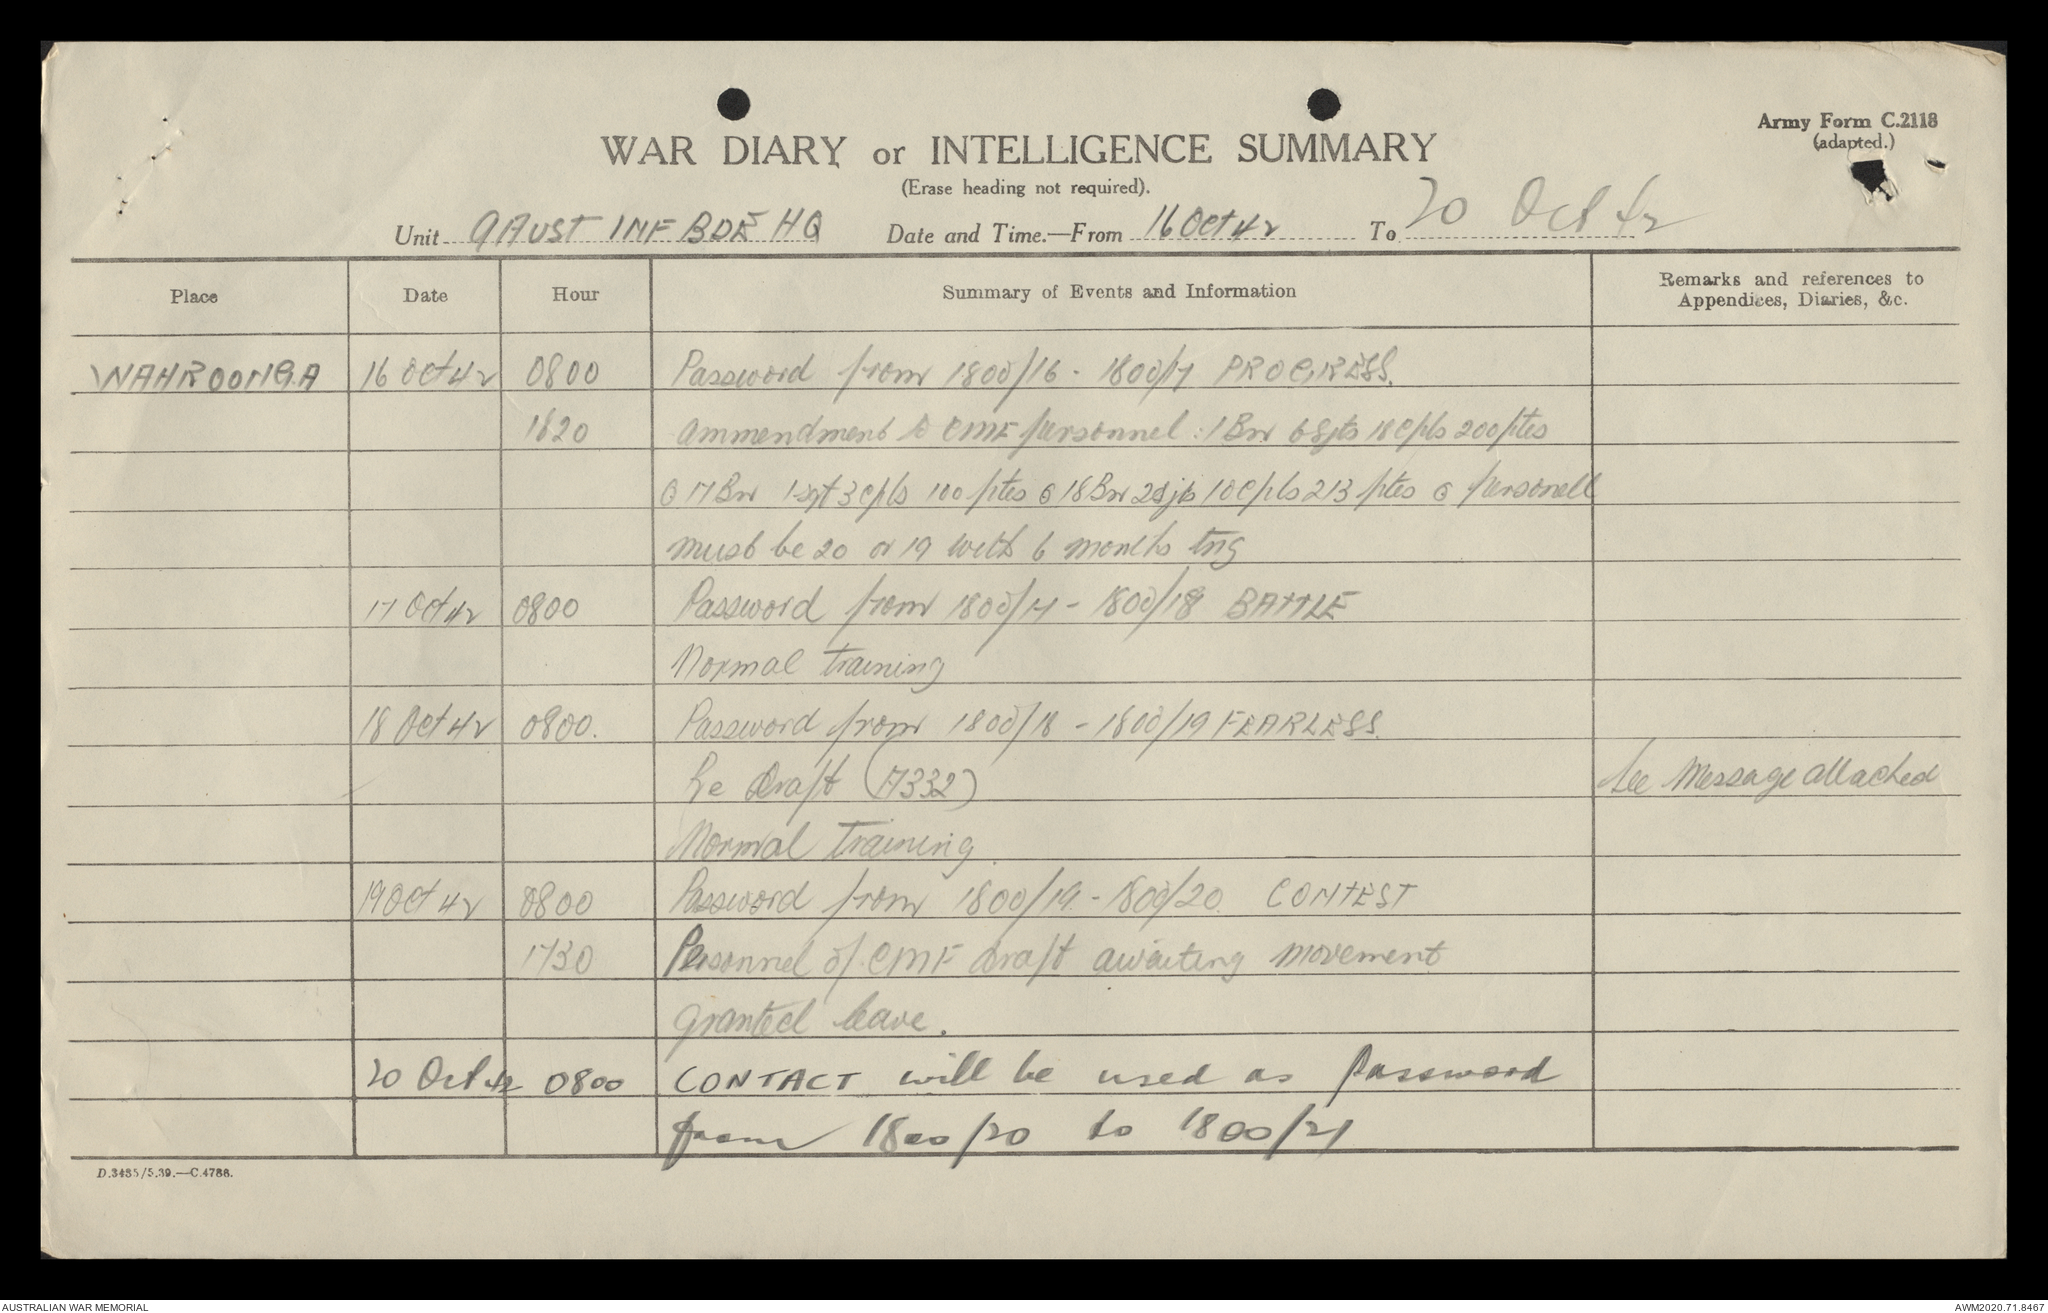 Army Form C.2118
(adapted.)
WAR DIARY or INTELLIGENCE SUMMARY
(Erase heading not required).
Unit 9 AUST INF BDE HQ Date and Time.—From 16 Oct 42 To 20 Oct 42
Place Date Hour Summary of Events and Information Remarks and references to
Appendices, Diaries, &c.
WAHROONGA 16 Oct 42 0800 Password from 1800/16 - 1800/17 PROGRESS.
1620 Ammendment to CMF personnel : 1 Bn 6 Sjts 18 Cpls 200 ptes
@ 17 Bn 1 sgt 3 cpls 100 ptes @ 18 Bn 2 sjts 10 cpls 213 ptes @ personell
must be 20 or 19 with 6 months tng
17 Oct 42 0800 Password from 1800/17 - 1800/18 BATTLE
Normal training
18 Oct 42 0800. Password from 1800/18 - 1800/19 FEARLESS.
Re Draft (A332) See Message attached
Normal training.
19 Oct 42 0800 Password from 1800/19 - 1800/20. CONTEST
1730 Personnel of CMF draft awaiting movement
granted leave.
20 Oct 42 0800 CONTACT will be used as Password
from 1800/20 to 1800/21
D.3485/5.39.—C.4786.
AUSTRALIAN WAR MEMORIAL AWM2020.71.8467